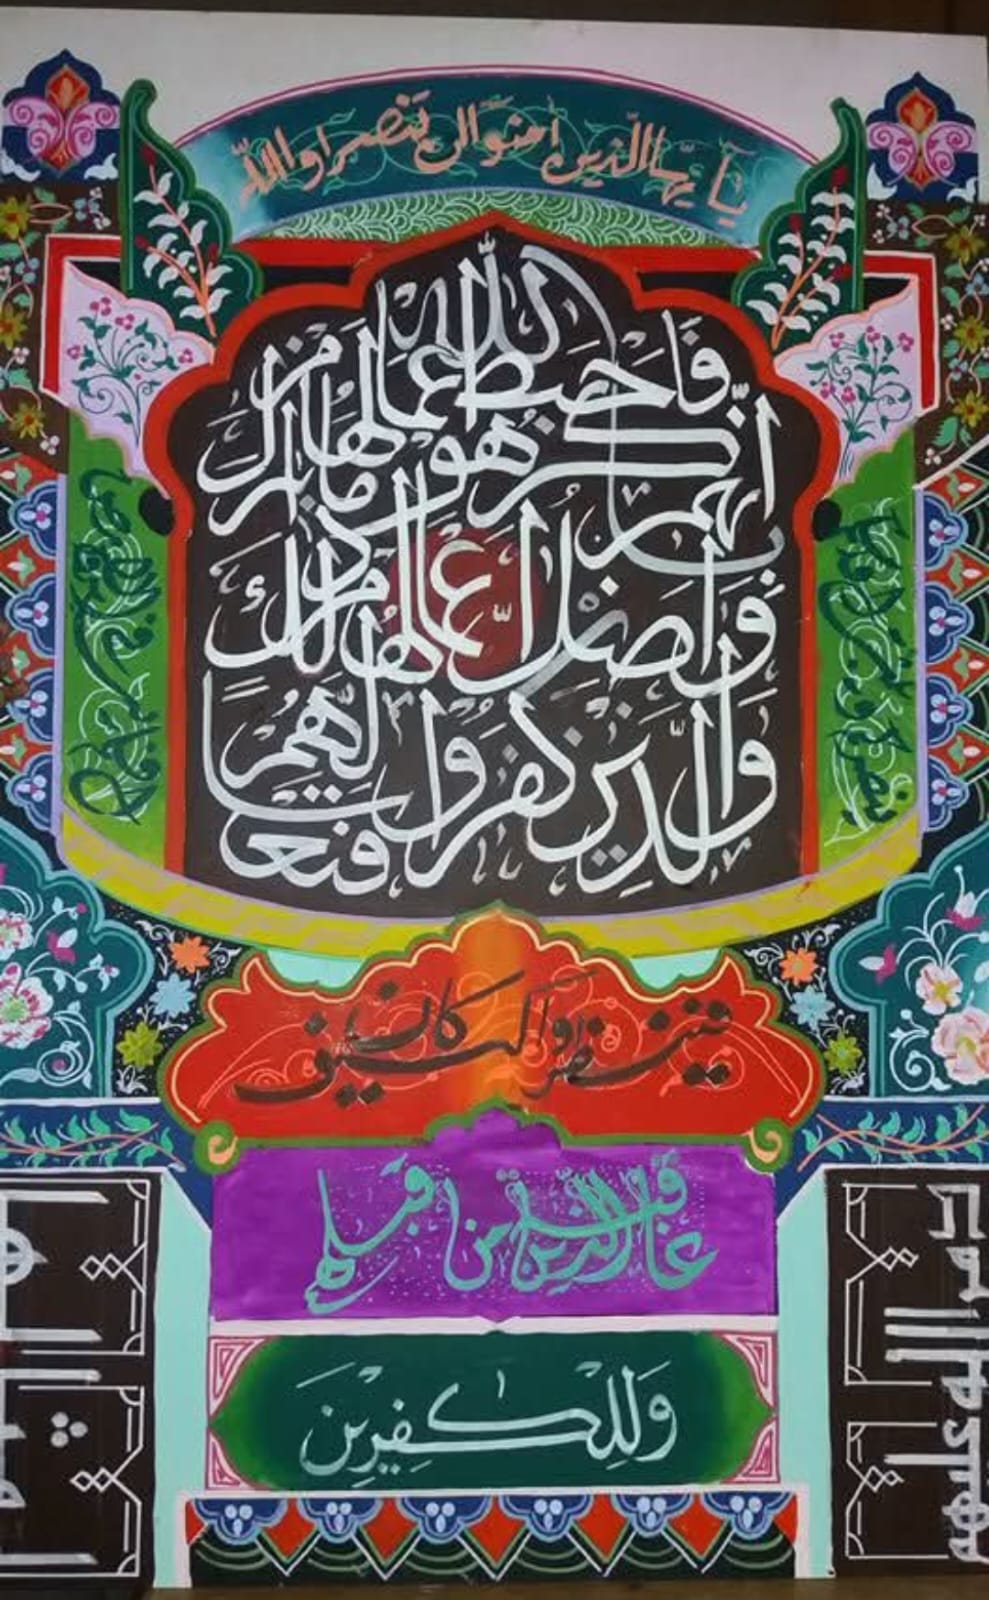 يأيها الذين امنوا ان تنصروا الله
ينصركم
والذين كفروا فتعسا لهم
واضل اعمالهم ذلك
بانهم كرهوا ما انزل
الله فاحبط اعمالهم
فينظروا كيف كان
عاقبة الذين من قبلهم
دمر الله عليهم
وللكفرين